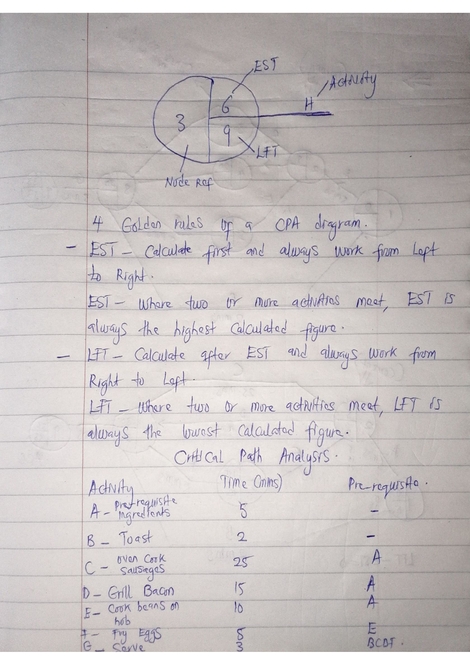 EST
Activity
H
6
3
9
LFT
Node Ref
4 Golden rules of a CPA diagram.
- EST - Calculate first and always work from Left
to Right.
EST - Where two or more activities meet, EST is
always the highest Calculated figure.
- LFT - Calculate after EST and always work from
Right to Left.
LFT - Where two or more activities meet, LFT is
always the lowest Calculated figure.
Critical Path Analysis.
Activity Time (mins) Pre-requisite.
A - Pre-requisite
ingredients 5 -
B - Toast 2 -
C - Oven Cook
Sausages 25 A
D - Grill Bacon 15 A
E - Cook beans on
hob 10 A
F - Fry Eggs 5 E
G - Serve 3